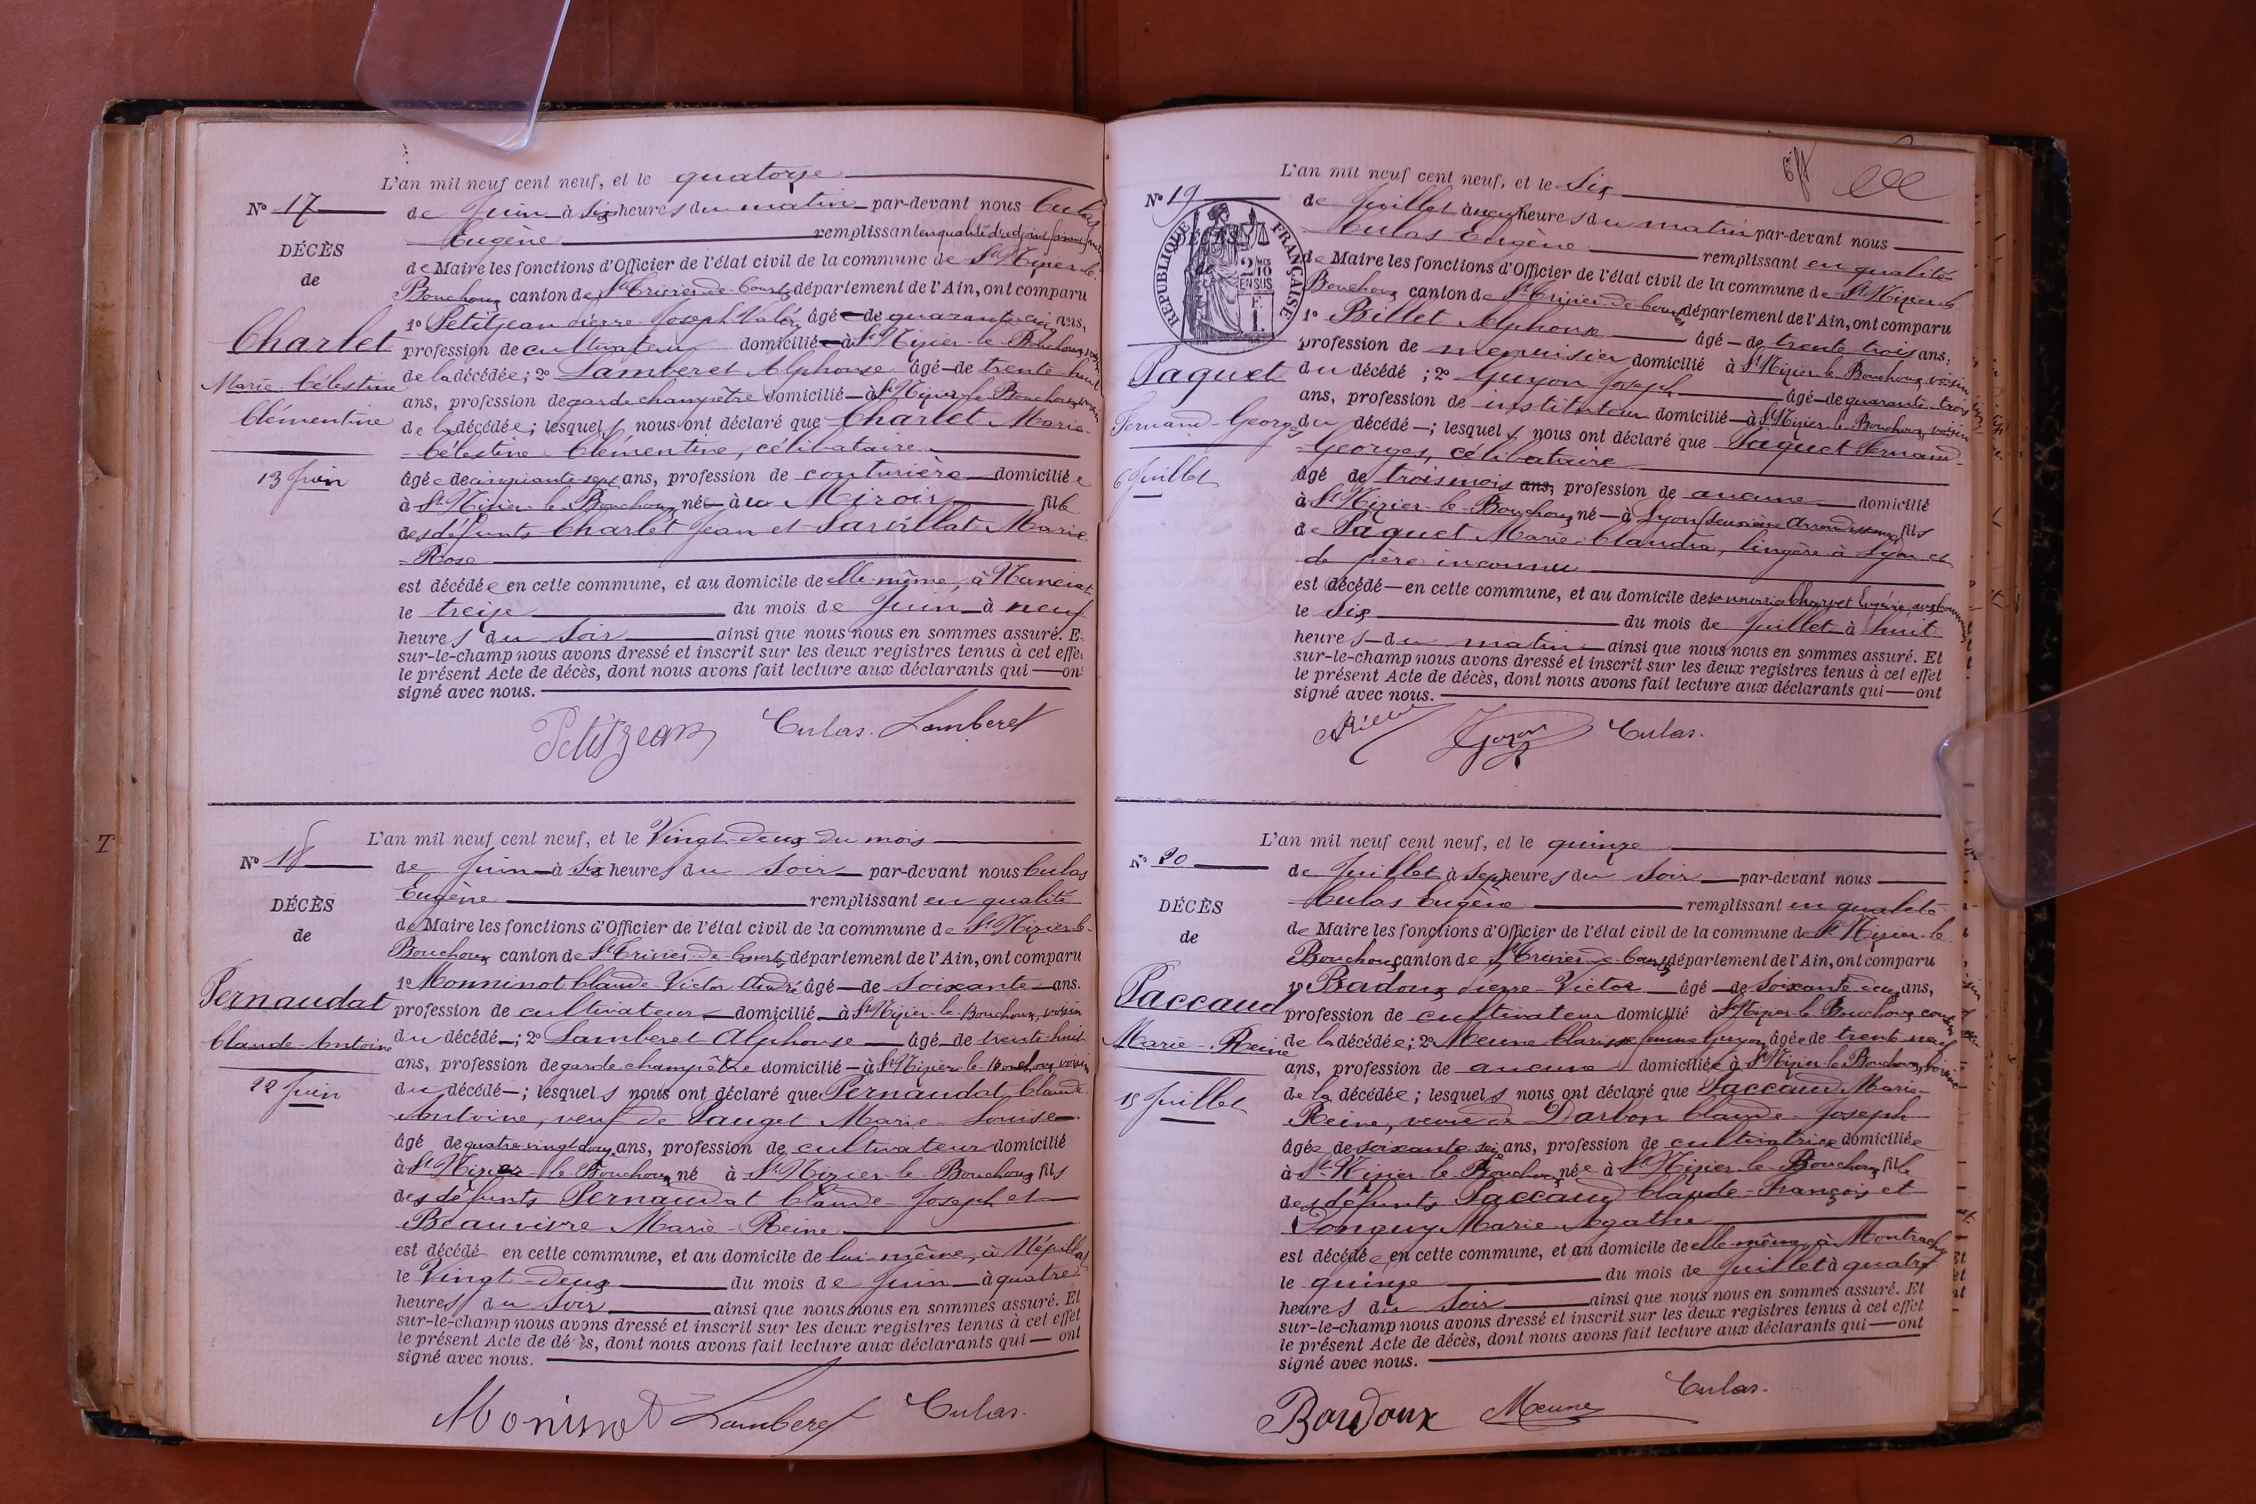 L'an mil neuf cent neuf, et le quatorze
N° 17
de Juin à six heures du matin par-devant nous Culas
Eugène remplissant en qualité d'adjoint
DÉCÈS
de Maire les fonctions d'Officier de l'état civil de la commune de St Nizier-le-
de
Bouchoux canton de St Trivier-de-Courtes département de l'Ain, ont comparu
1° Petitjean Pierre Joseph Valéry âgé de quarante cinq ans,
Charlet
profession de cultivateur domicilié à St Nizier-le-Bouchoux voisin
Marie-Célestine
de la décédée; 2° Lamberet Alphonse âgé de trente huit
Clémentine
ans, profession de garde champêtre domicilié à St Nizier-le-Bouchoux voisin
de la décédée; lesquels nous ont déclaré que Charlet Marie-
Célestine-Clémentine, célibataire
13 Juin
âgée de cinquante sept ans, profession de couturière domiciliée
à St Nizier-le-Bouchoux née à Miroir fille
des défunts Charlet Jean et Sarvillat Marie
Rose
est décédée en cette commune, et au domicile de elle-même, à Nanciat
le treize du mois de Juin à neuf
heures du soir ainsi que nous nous en sommes assuré. E
sur-le-champ nous avons dressé et inscrit sur les deux registres tenus à cet effe
le présent Acte de décès, dont nous avons fait lecture aux déclarants qui on
signé avec nous.
Petitjean Culas. Lamberet
L'an mil neuf cent neuf, et le Vingt-deux du mois
N° 18
de Juin à six heures du soir par-devant nous Culas
Eugène remplissant en qualité
DÉCÈS
de Maire les fonctions d'Officier de l'état civil de la commune de St Nizier-le-
de
Bouchoux canton de St Trivier-de-Courtes département de l'Ain, ont comparu
1° Monninot Claude-Victor André âgé de soixante ans.
Pernaudat
profession de cultivateur domicilié à St Nizier-le-Bouchoux, voisin
Claude-Antoine
du décédé; 2° Lamberet Alphonse âgé de trente-huit
ans, profession de garde champêtre domicilié à St Nizier-le-Bouchoux voisin
22 Juin
du décédé; lesquels nous ont déclaré que Pernaudat Claude
Antoine, veuf de Pauget Marie-Louise
âgé de quatre vingt douze ans, profession de cultivateur domicilié
à St Nizier le Bouchoux né à St Nizier-le-Bouchoux fils
des défunts Pernaudat Claude-Joseph et
Beauvivre Marie-Reine
est décédé en cette commune, et au domicile de lui-même, à
le Vingt-deux du mois de Juin à quatre
heures du soir ainsi que nous nous en sommes assuré. Et
sur-le-champ nous avons dressé et inscrit sur les deux registres tenus à cet effet
le présent Acte de dé ès, dont nous avons fait lecture aux déclarants qui ont
signé avec nous.
Moninot Lamberet Culas.
L'an mil neuf cent neuf, et le Six
N° 19
de Juillet à neuf heures du matin par-devant nous
Culas Eugène remplissant en qualité
RÉPUBLIQUE FRANÇAISE
DÉCÈS
2 10
EN SUS
de Maire les fonctions d'Officier de l'état civil de la commune de St Nizier-le
de
Bouchoux canton de St Trivier-de-Courtes département de l'Ain, ont comparu
1° Billet Alphonse âgé de trente trois ans,
profession de menuisier domicilié à St Nizier-le-Bouchoux, voisin
Paquet
du décédé; 2° Guyon Joseph âgé de quarante-trois
ans, profession de instituteur domicilié à St Nizier-le-Bouchoux, voisin
Fernand-Georges
du décédé; lesquels nous ont déclaré que Paquet Fernand-
Georges, célibataire
6 Juillet
âgé de trois mois ans, profession de aucune domicilié
à St Nizier-le-Bouchoux né à Lyon deuxième Arrondissement fils
de Paquet Marie-Claudia, lingère à Lyon et
de père inconnu
est décédé en cette commune, et au domicile de sa nourrice Charvet
le six du mois de Juillet à huit
heures du matin ainsi que nous nous en sommes assuré. Et
sur-le-champ nous avons dressé et inscrit sur les deux registres tenus à cet effet
le présent Acte de décès, dont nous avons fait lecture aux déclarants qui ont
signé avec nous.
Billet Guyon Culas.
L'an mil neuf cent neuf, et le quinze
N° 20
de Juillet à sept heures du soir par-devant nous
Culas Eugène remplissant en qualité
DÉCÈS
de Maire les fonctions d'Officier de l'état civil de la commune de St Nizier-le
de
Bouchoux canton de St Trivier-de-Courtes département de l'Ain, ont comparu
1° Badoux Pierre-Victor âgé de soixante deux ans,
Paccaud
profession de cultivateur domicilié à St Nizier-le-Bouchoux, cousin
Marie-Reine
de la décédée; 2° Meune Clarisse femme Guyon âgée de trente neuf
ans, profession de aucune domiciliée à St Nizier-le-Bouchoux, voisine
15 Juillet
de la décédée; lesquels nous ont déclaré que Paccaud Marie-
Reine, veuve de Darbon Claude-Joseph
âgée de soixante six ans, profession de cultivatrice domiciliée
à St Nizier-le-Bouchoux née à St Nizier-le-Bouchoux fille
des défunts Paccaud Claude-François et
Marie-Agathe
est décédée en cette commune, et au domicile de elle-même, à
le quinze du mois de Juillet à quatre
heures du soir ainsi que nous nous en sommes assuré. Et
sur-le-champ nous avons dressé et inscrit sur les deux registres tenus à cet effet
le présent Acte de décès, dont nous avons fait lecture aux déclarants qui ont
signé avec nous.
Culas.
Badoux Meune